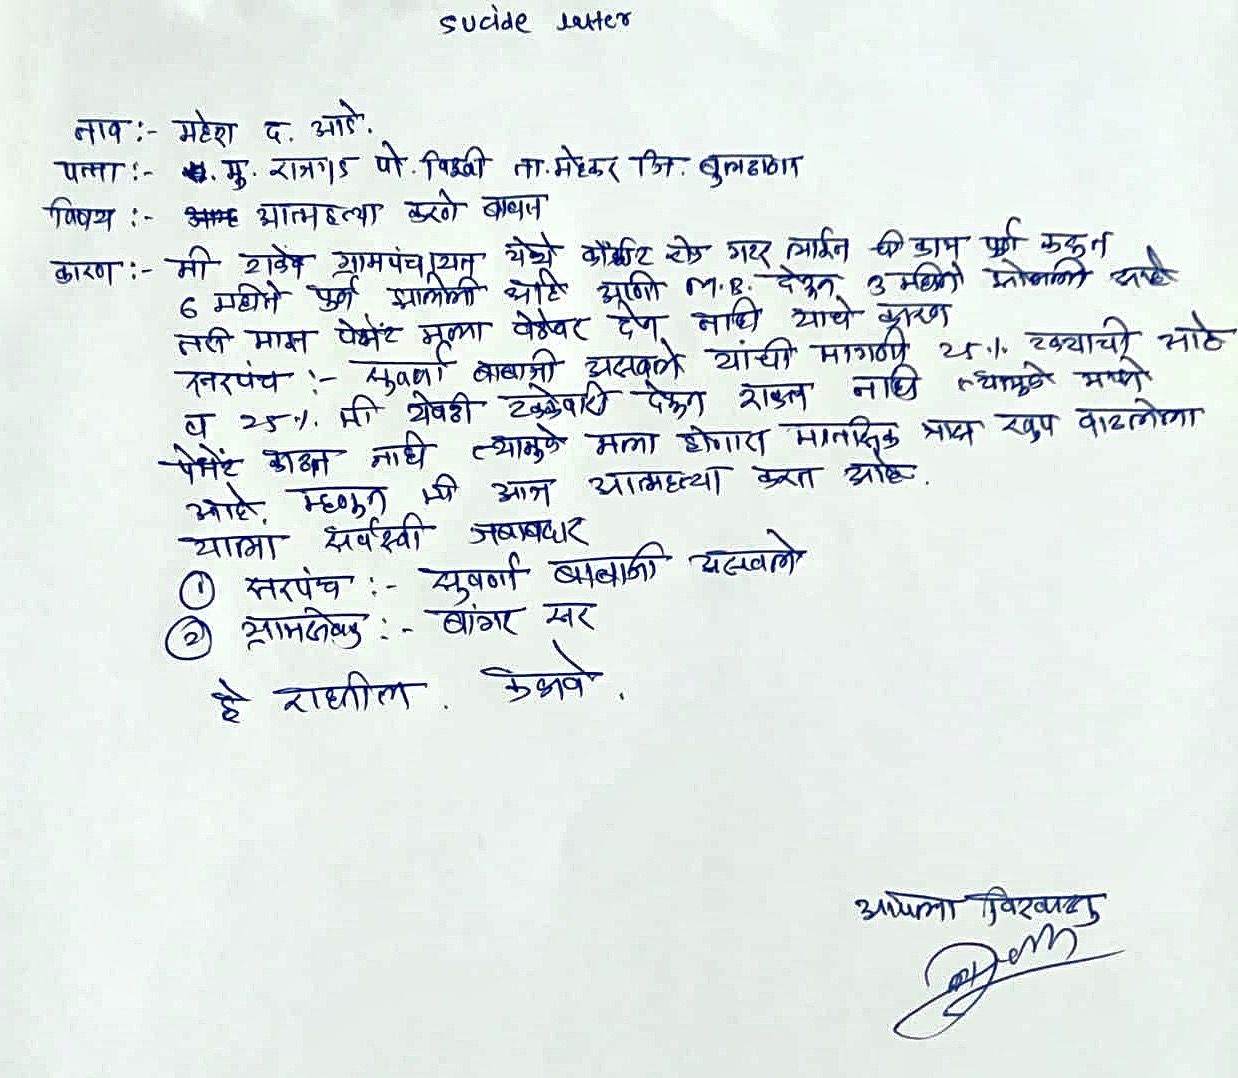 sucide letter
नाव :- महेश द. आडे.
पत्ता :- मु. राजगड पो. विश्वी ता. मेहकर जि. बुलढाणा
विषय :- आत्महत्या करणे बाबत
कारण :- मी ग्रामपंचायत येथे रोड गटर लाईन काम पुर्ण करून
6 महीने पुर्ण झालेली आहे आणी M.B. देऊन 3 महिने आहे
तरी माझ पेमेंट मला वेळेवर देण नाही याचे कारण
सरपंच :- सुवर्णा बाबाजी यसवले यांची मागणी 25% टक्याची आहे
व 25% मी येवढी टक्केवारी देऊन शकत नाहि त्यामुळे माझे
पेमेंट काढत नाही त्यामुळे मला होणारा मानसिक त्रास खुप वाढलेला
आहे. म्हणून मी आज आत्महत्या करत आहे.
याला सर्वस्वी जबाबदार
① सरपंच :- सुवर्णा बाबाजी यसवले
② ग्रामसेवक :- बांगर सर
हे राहतील.
आपला विश्वासु